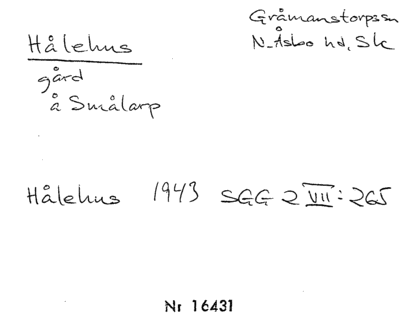 Hålehus
Gråmanstorpssn
N. Åsbo hd, Sk
gård
å Smålarp
Hålehus 1943 SGG 2 VII: 265
Nr 16431